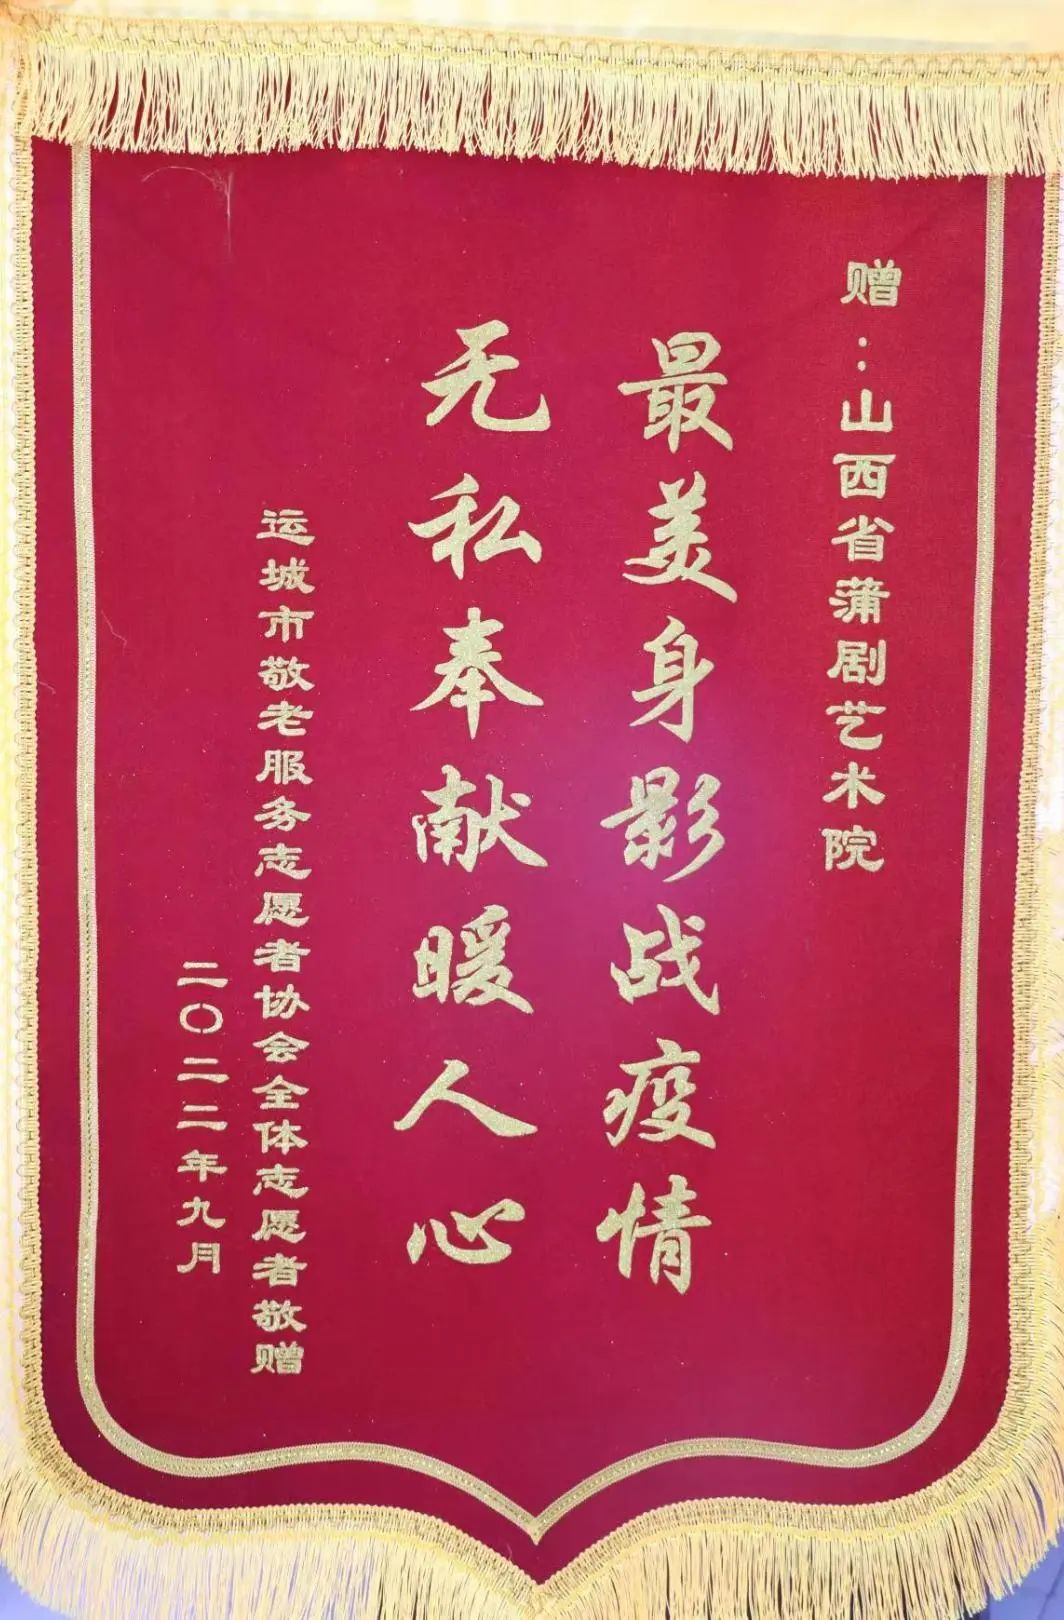 赠:山西省蒲剧艺术院
最美身影战疫情
无私奉献暖人心
运城市敬老服务志愿者协会全体志愿者敬赠
二〇二二年九月